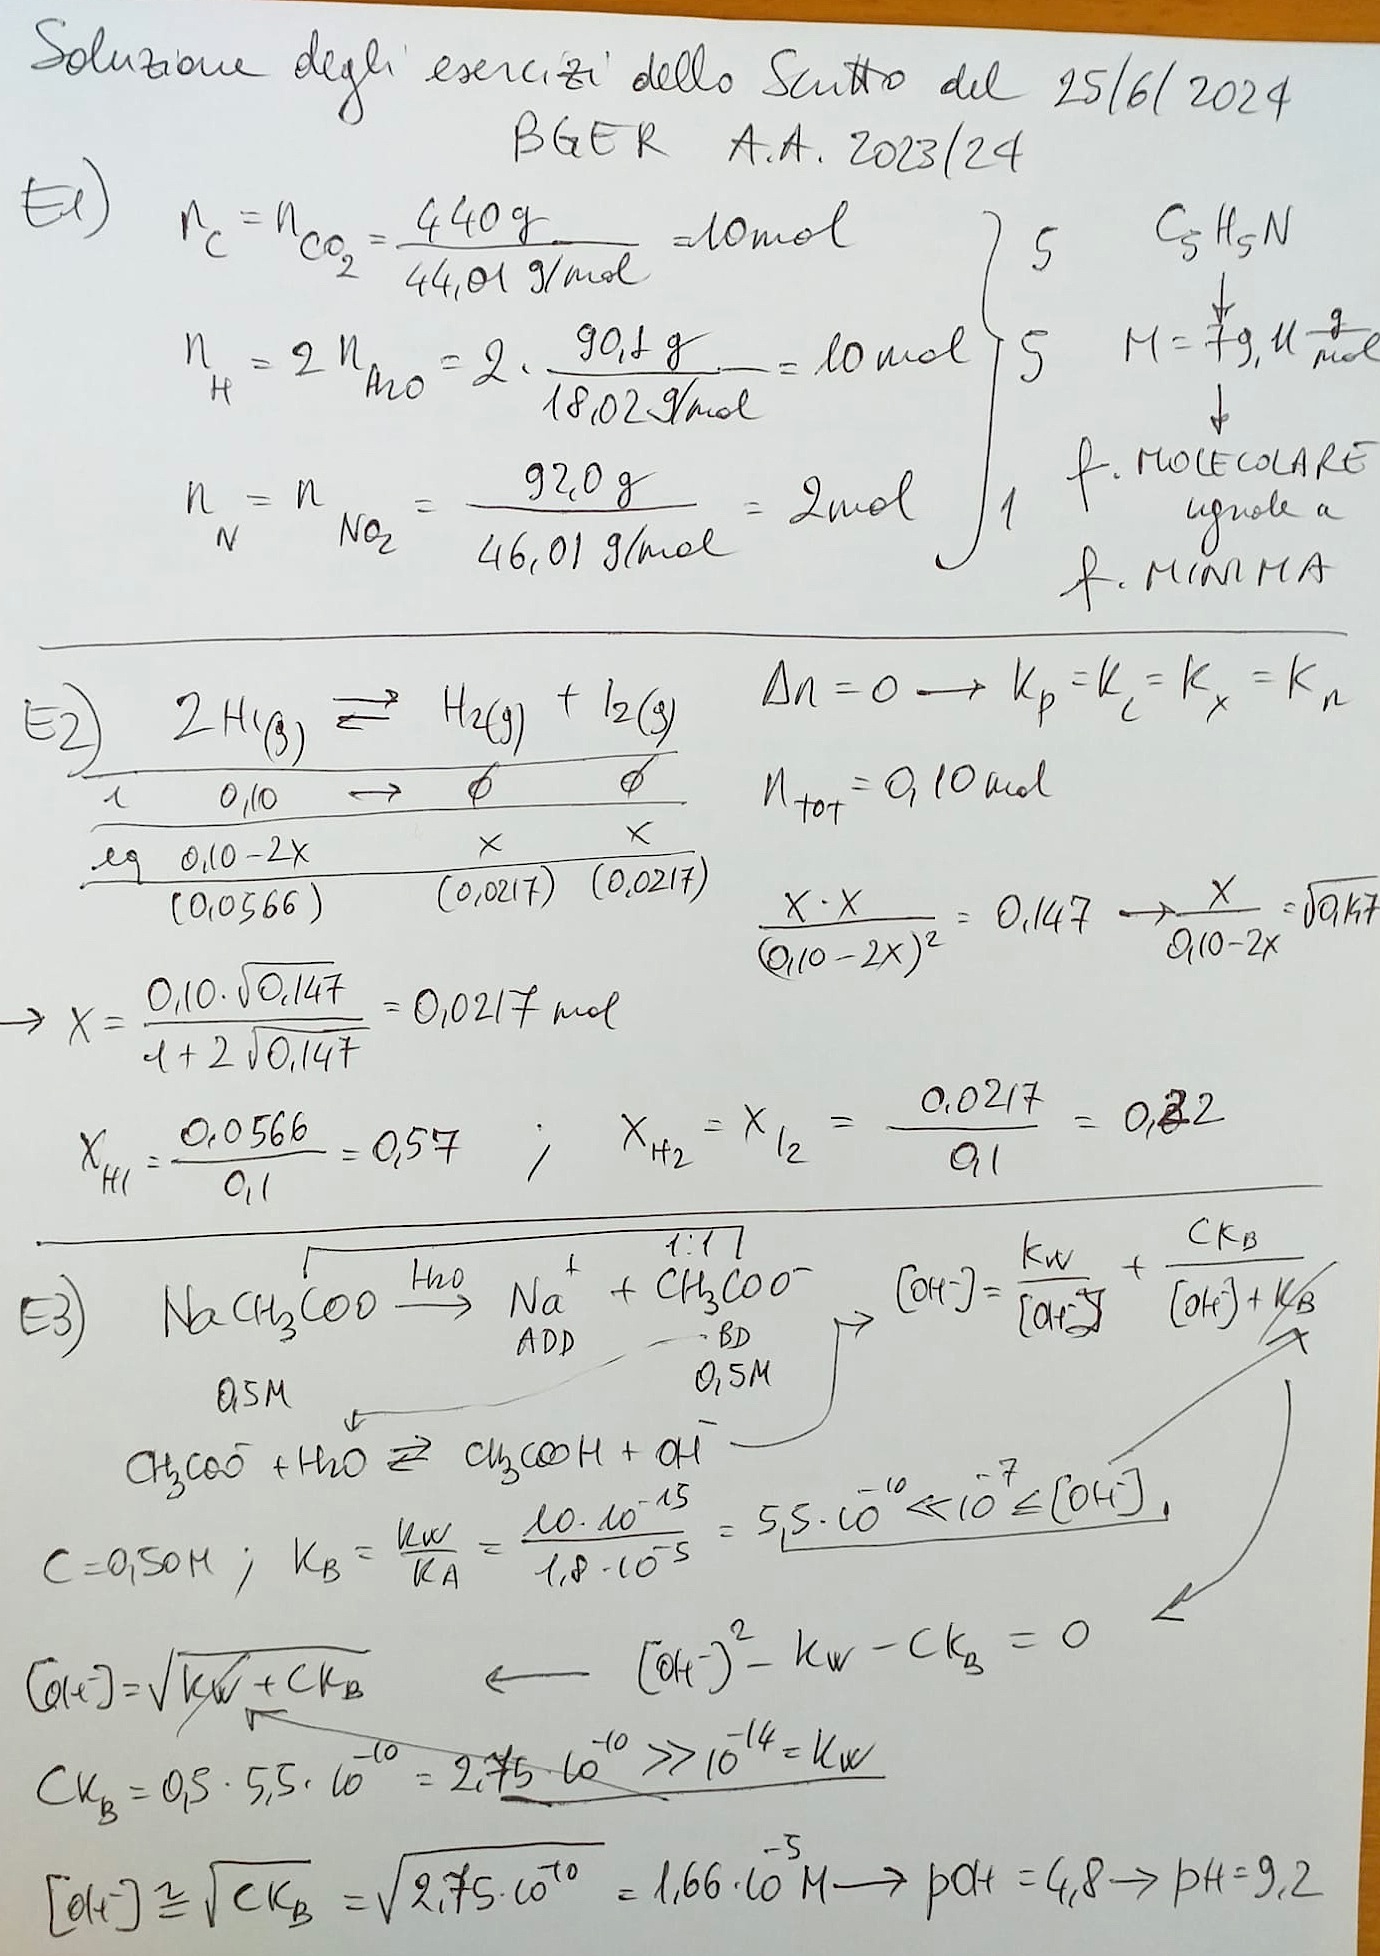 Soluzione degli esercizi dello Scritto del 25/6/2024
BGER A.A. 2023/24
E1) n_C = n_CO2 = 440 g / 44,01 g/mol = 10 mol } 5 C5H5N
↓
n_H = 2 n_H2O = 2 · 90,1 g / 18,02 g/mol = 10 mol } 5 M = 79,11 g/mol
↓
n_N = n_NO2 = 92,0 g / 46,01 g/mol = 2 mol } 1 f. MOLECOLARE
uguale a
f. MINIMA
E2) 2HI(g) ⇄ H2(g) + I2(g) Δn = 0 → Kp = Kc = Kx = Kn
i 0,10 → ∅ ∅ n_TOT = 0,10 mol
eq 0,10-2x x x
(0,0566) (0,0217) (0,0217)
x·x / (0,10-2x)² = 0,147 → x / 0,10-2x = √0,147
→ x = 0,10·√0,147 / 1+2√0,147 = 0,0217 mol
X_HI = 0,0566 / 0,1 = 0,57 ; X_H2 = X_I2 = 0,0217 / 0,1 = 0,22
E3) NaCH3COO —H2O→ Na⁺ + CH3COO⁻ 1:1 [OH⁻] = Kw / [OH⁻] + CK_B / [OH⁻] + K_B
ADD BD
0,5M 0,5M
CH3COO⁻ + H2O ⇄ CH3COOH + OH⁻
C = 0,50M ; K_B = Kw / KA = 10·10⁻¹⁵ / 1,8·10⁻⁵ = 5,5·10⁻¹⁰ ≪ 10⁻⁷ ≤ [OH⁻]
[OH⁻] = √Kw + CK_B ← [OH⁻]² - Kw - CK_B = 0
CK_B = 0,5 · 5,5 · 10⁻¹⁰ = 2,75·10⁻¹⁰ >> 10⁻¹⁴ = Kw
[OH⁻] ≅ √CK_B = √2,75·10⁻¹⁰ = 1,66·10⁻⁵ M → pOH = 4,8 → pH = 9,2